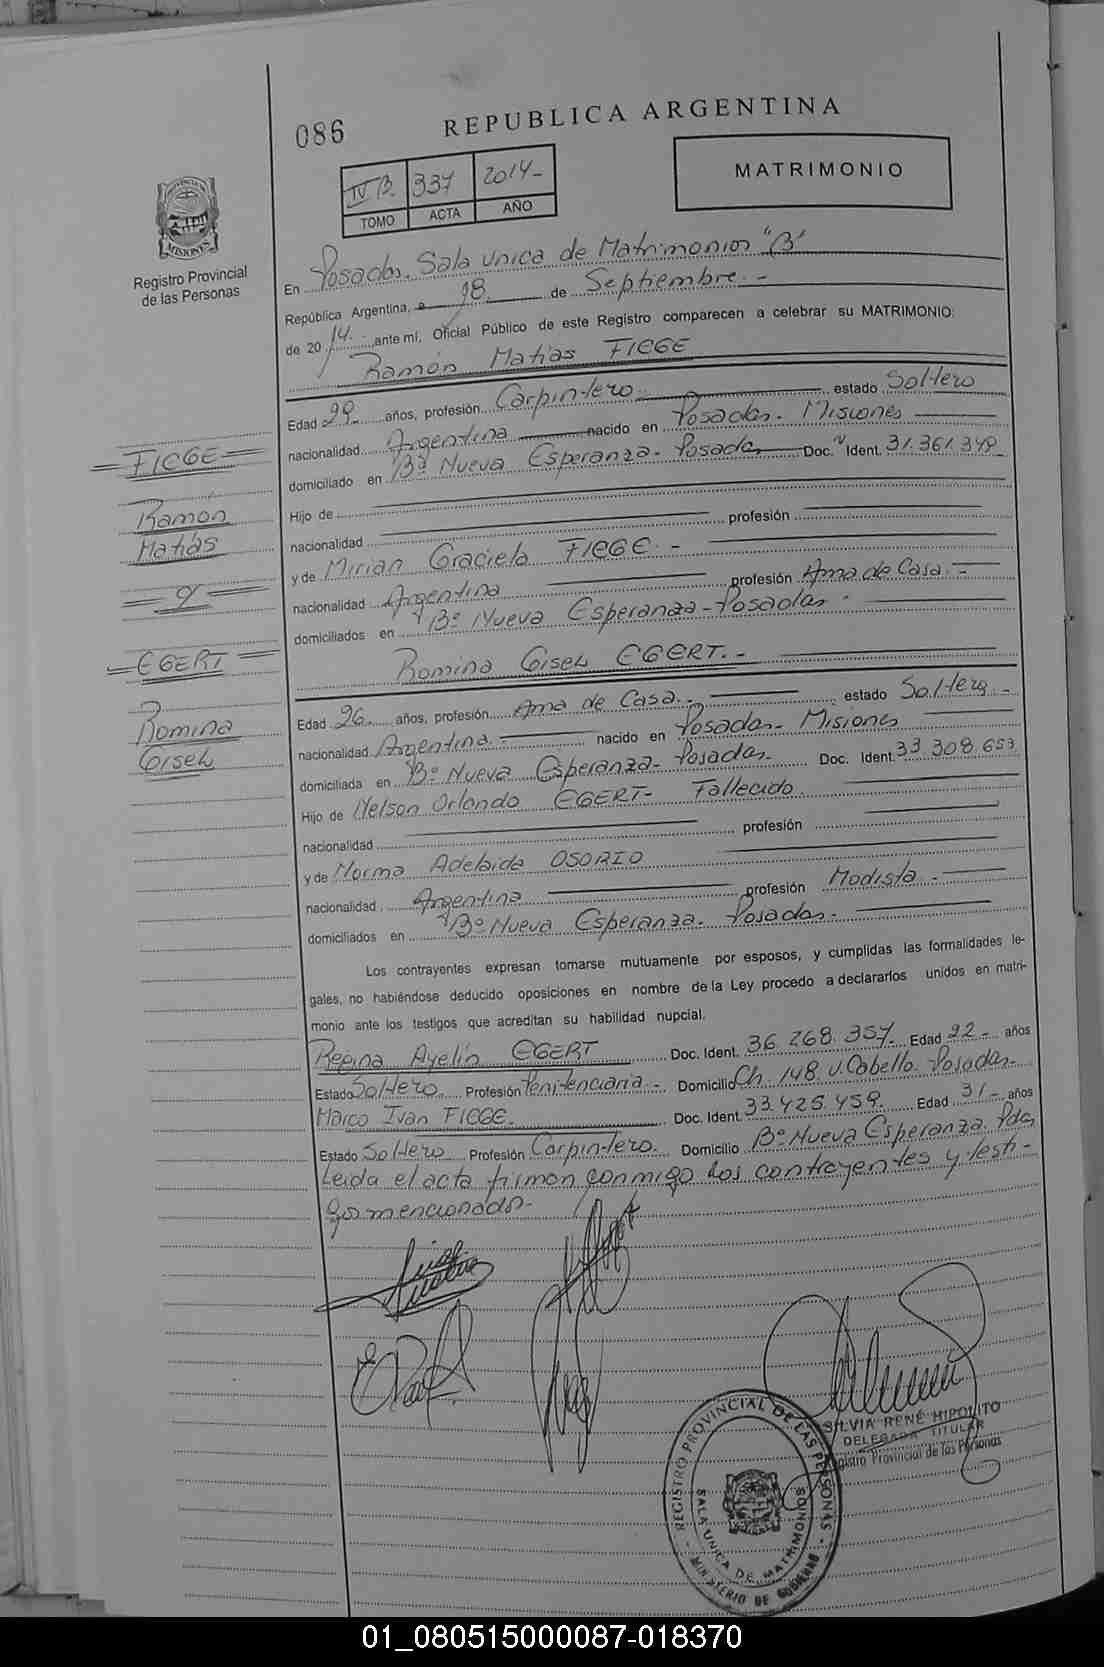 086
REPUBLICA ARGENTINA
MATRIMONIO
IV B. 337 2014-
TOMO ACTA AÑO
PROVINCIA DE
MISIONES
Registro Provincial
de las Personas
En Posadas. Sala Unica de Matrimonios "B"
República Argentina, a 18. de Septiembre.-
de 20 14.- ante mí, Oficial Público de este Registro comparecen a celebrar su MATRIMONIO:
Ramón Matias FIEGE
Edad 29 años, profesión Carpintero estado Soltero
nacionalidad Argentina nacido en Posadas- Misiones
domiciliado en Bº Nueva Esperanza- Posadas Doc. Ident. 31.361.349
Hijo de
nacionalidad profesión
y de Mirian Graciela FIEGE.-
nacionalidad Argentina profesión Ama de Casa.-
domiciliados en Bº Nueva Esperanza-Posadas-
Romina Gisel EGERT.-
Edad 26. años, profesión Ama de Casa.- estado Soltera-
nacionalidad Argentina.- nacido en Posadas- Misiones
domiciliada en Bº Nueva Esperanza- Posadas- Doc. Ident. 33.308.653
Hijo de Nelson Orlando EGERT- Fallecido.
nacionalidad profesión
y de Norma Adelaida OSORIO
nacionalidad Argentina profesión Modista.-
domiciliados en Bº Nueva Esperanza- Posadas-
Los contrayentes expresan tomarse mutuamente por esposos, y cumplidas las formalidades le-
gales, no habiéndose deducido oposiciones en nombre de la Ley procedo a declararlos unidos en matri-
monio ante los testigos que acreditan su habilidad nupcial.
Regina Ayelin EGERT Doc. Ident. 36.268.357. Edad 22- años
Estado Soltero. Profesión Penitenciaria.- Domicilio Ch. 148 V. Cabello- Posadas-
Marco Ivan FIEGE. Doc. Ident. 33.425.459. Edad 31- años
Estado Soltero Profesión Carpintero. Domicilio Bº Nueva Esperanza. Pdas
Leida el acta firman conmigo los contrayentes y testi-
gos mencionados-
FIEGE
Ramón
Matias
y
EGERT
Romina
Gisel
SILVIA RENÉ HIPOLITO
DELEGADA TITULAR
Registro Provincial de las Personas
REGISTRO PROVINCIAL DE LAS PERSONAS
SALA UNICA DE MATRIMONIOS
MINISTERIO DE GOBIERNO
01_080515000087-018370